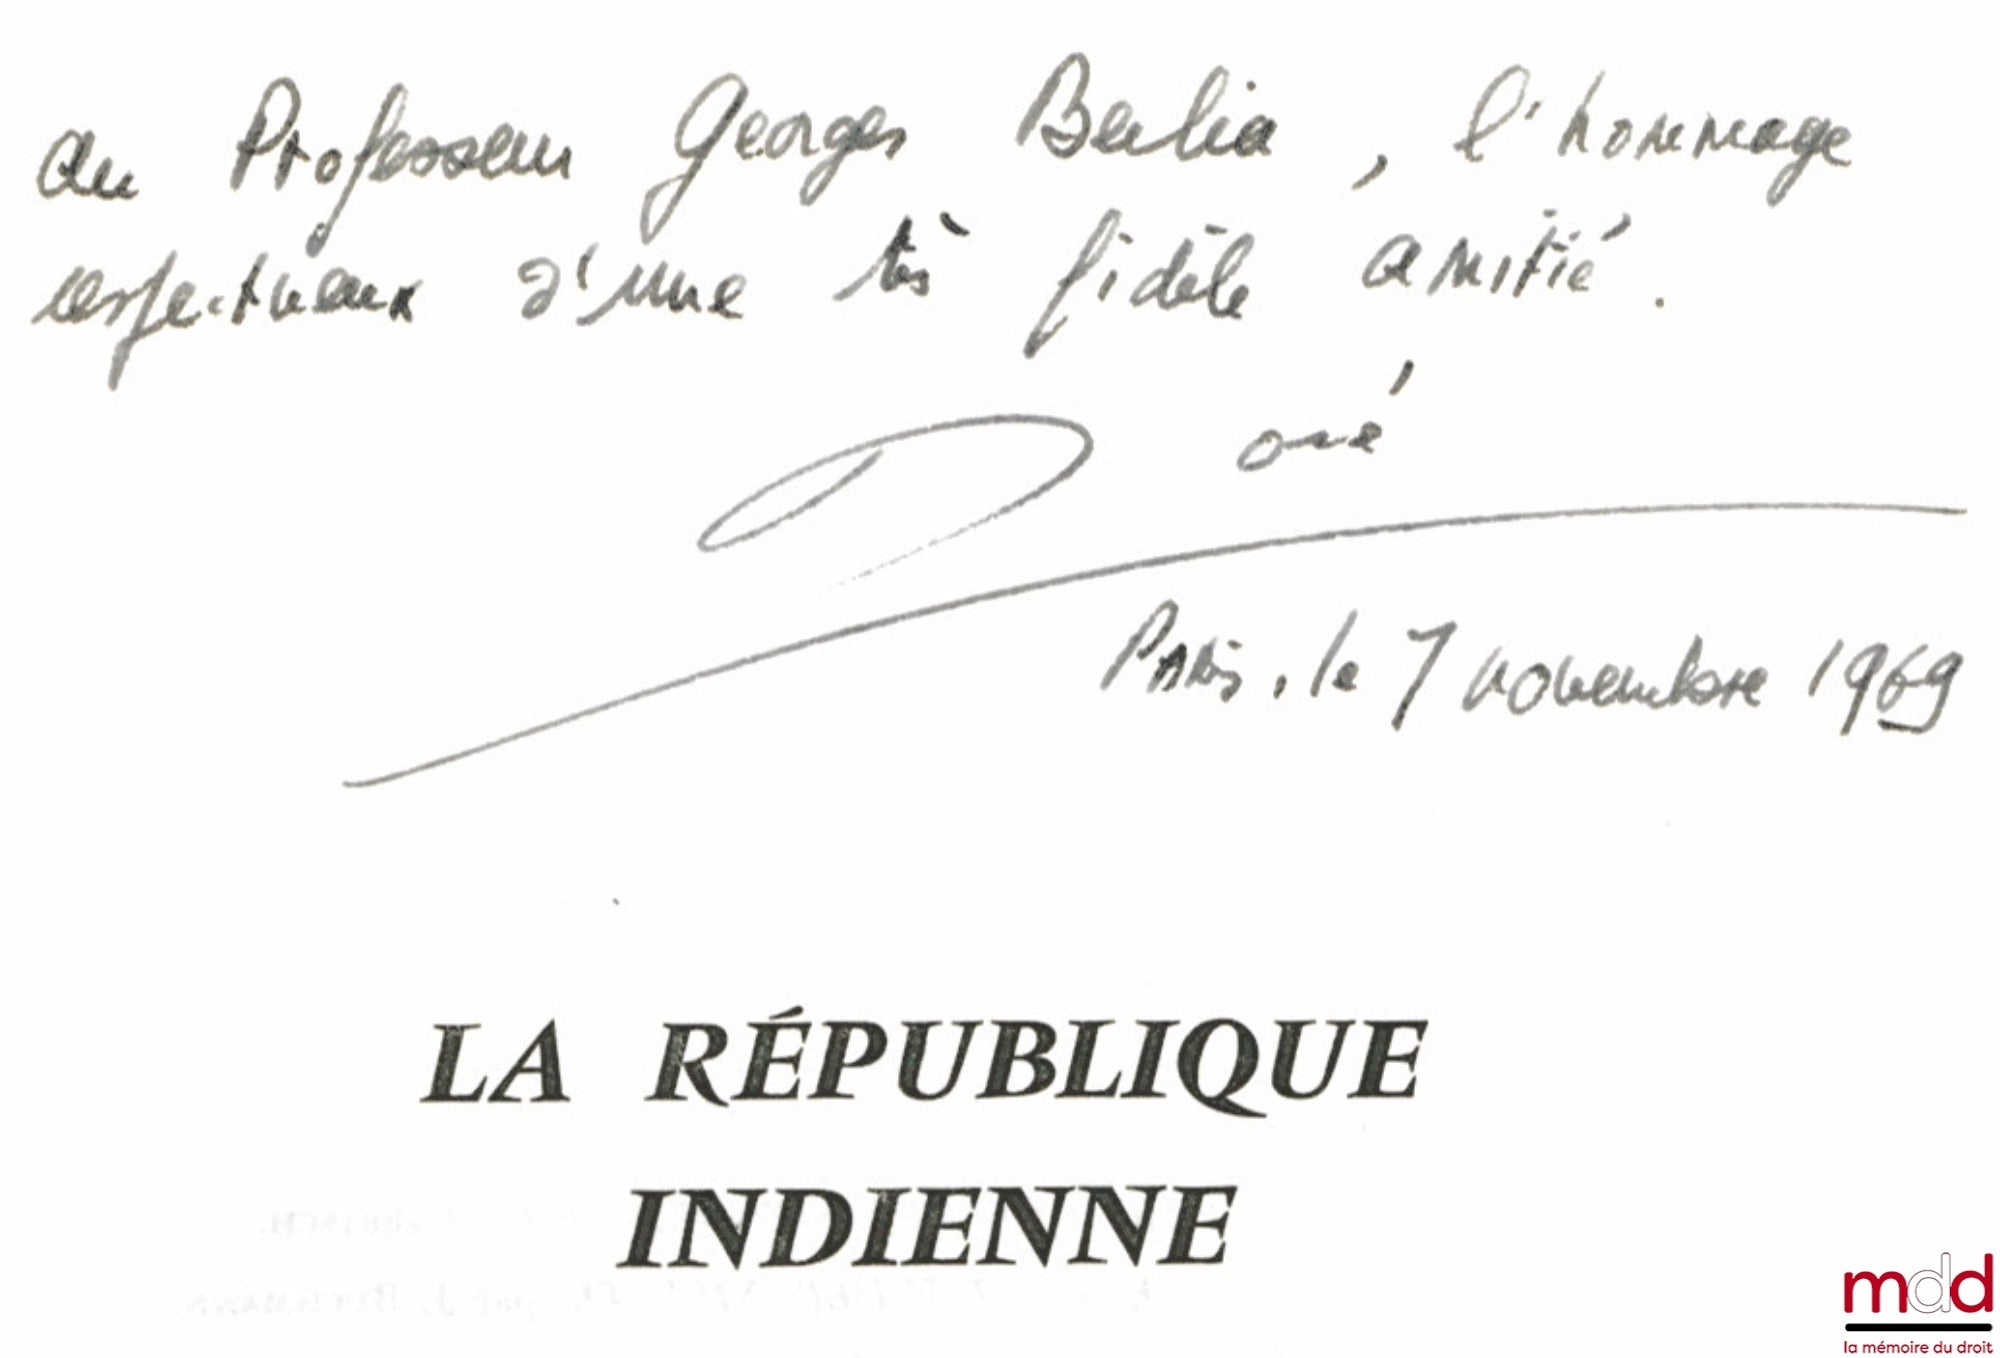 au Professeur Georges Berlia, l'hommage
respectueux d'une très fidèle amitié.
Paris, le 7 novembre 1969
LA RÉPUBLIQUE
INDIENNE
mdd
la mémoire du droit